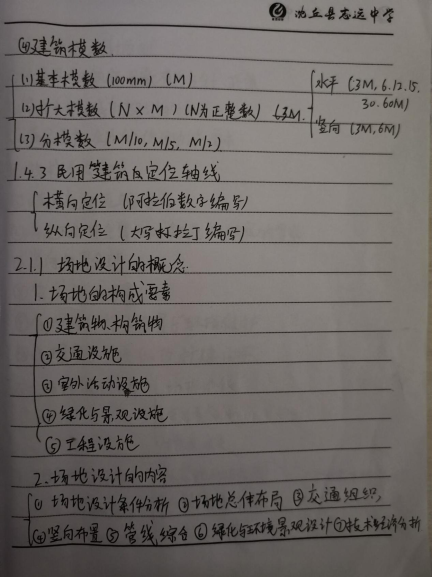 沈丘县志远中学
(4)建筑模数.
(1)基本模数 (100mm) (M)
(2)扩大模数 (N×M) (N为正整数) (3M.
水平 (3M, 6.12.15.
30.60M)
竖向 (3M, 6M)
(3)分模数 (M/10, M/5, M/2)
1.4.3 民用建筑定位轴线
横向定位 (阿拉伯数字编写)
纵向定位 (大写拉丁编写)
2.1.1 场地设计的概念
1.场地的构成要素
①建筑物、构筑物
②交通设施
③室外活动设施
④绿化与景观设施
⑤工程设施
2.场地设计的内容
① 场地设计条件分析 ②场地总体布局 ③交通组织,
④竖向布置 ⑤管线综合 ⑥绿化与环境景观设计 ⑦技术经济分析